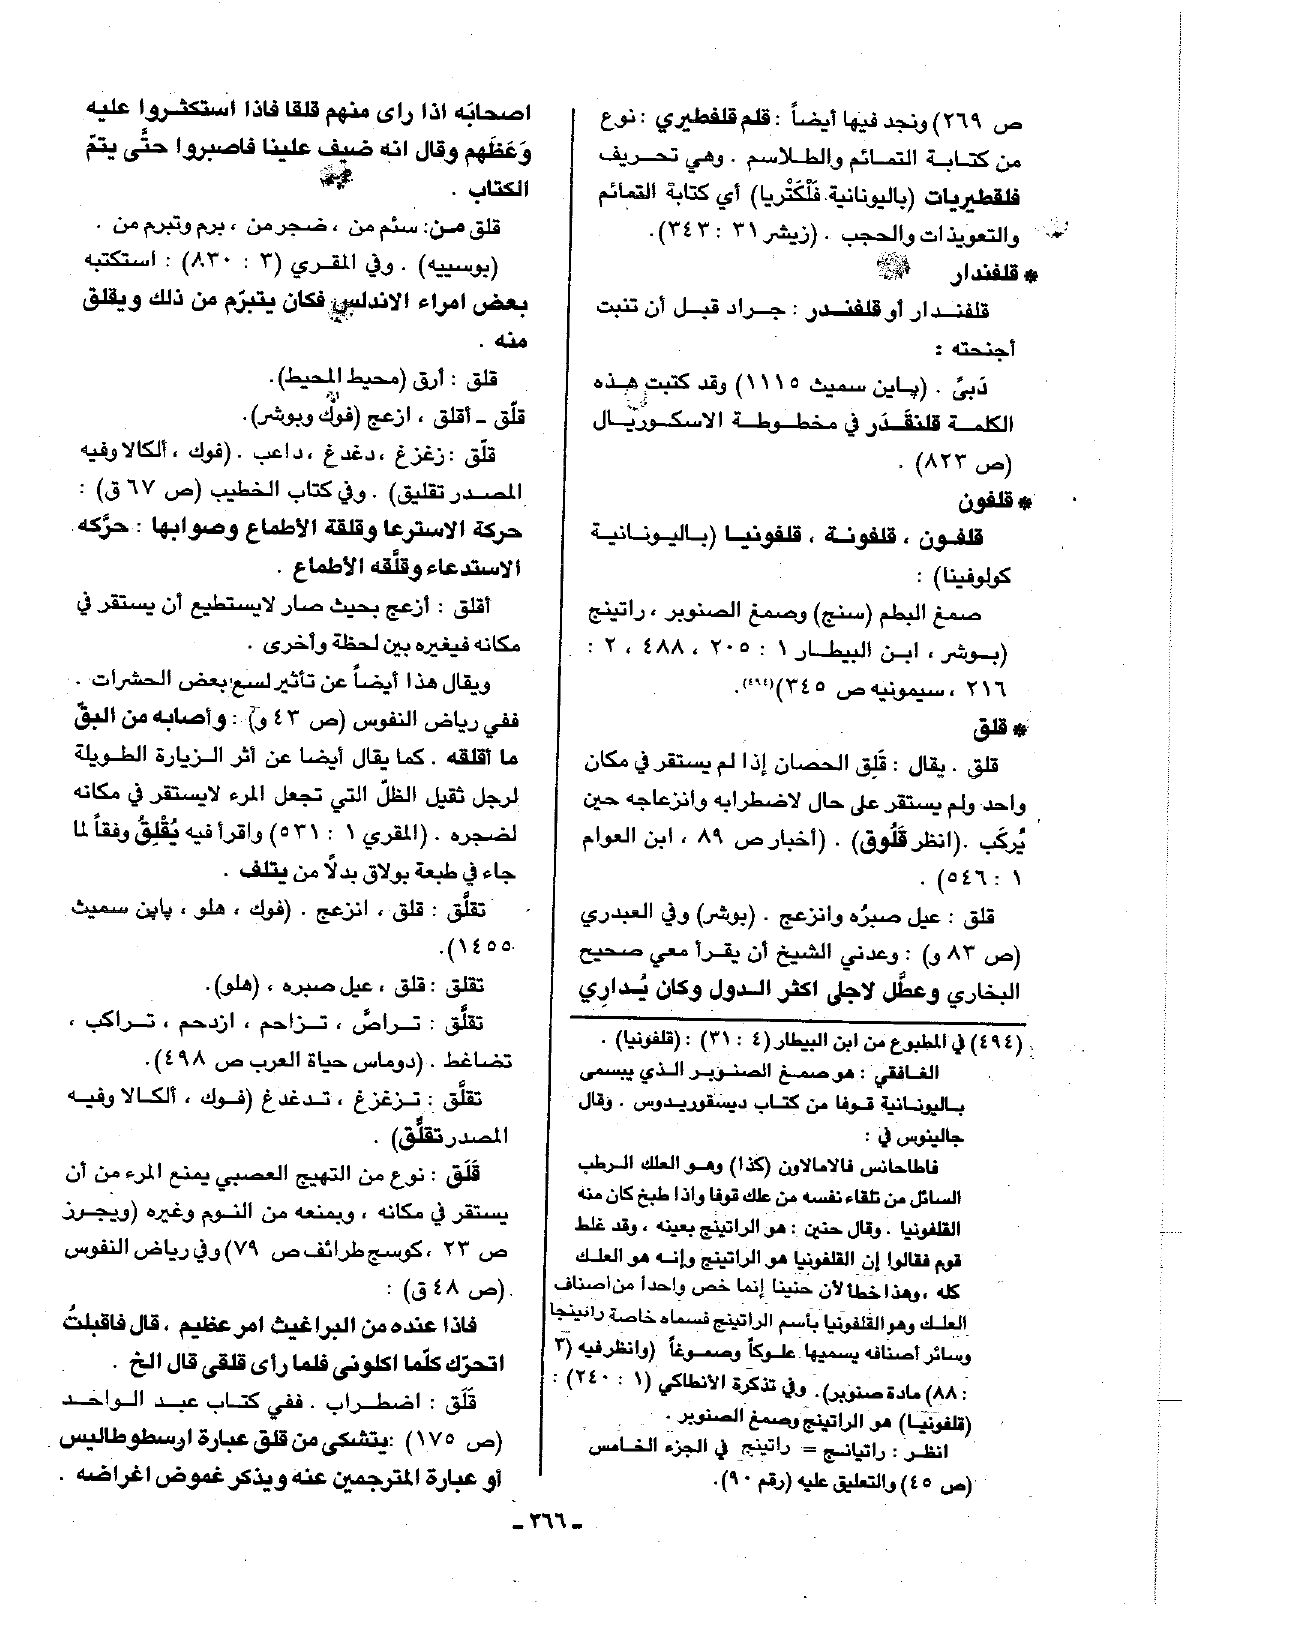 ص ٢٦٩) ونجد فيها أيضاً : قلم قلفطيري : نوع
من كتابة التمائم والطلاسم . وهي تحريف
فلقطيريات (باليونانية فَلَكْتريا) أي كتابة التمائم
والتعويذات والحجب . (زيشر ٣١ : ٣٤٣).
* قلفندار
قلفندار أو قلفندر : جراد قبل أن تنبت
أجنحته :
دَبىً . (پاين سميث ١١١٥) وقد كتبت هذه
الكلمة قلنقَدَر في مخطوطة الاسكوريال
(ص ٨٢٣) .
* قلفون
قلفون ، قلفونة ، قلفونيا (باليونانية
كولوفينا) :
صمغ البطم (سنج) وصمغ الصنوبر ، راتينج
(بوشر ، ابن البيطار ١ : ٢٠٥ ، ٤٨٨ ، ٢ :
٢١٦ ، سيمونيه ص ٣٤٥)(٤٩٤).
* قلق
قلق . يقال : قَلِق الحصان إذا لم يستقر في مكان
واحد ولم يستقر على حال لاضطرابه وانزعاجه حين
يُركَب . (انظر قَلُوق) . (أخبار ص ٨٩ ، ابن العوام
١ : ٥٤٦) .
قلق : عيل صبرُه وانزعج . (بوشر) وفي العبدري
(ص ٨٣ و) : وعدني الشيخ أن يقرأ معي صحيح
البخاري وعطَّل لاجلى اكثر الدول وكان يُداري
(٤٩٤) في المطبوع من ابن البيطار (٤ : ٣١) : (قلفونيا) .
الغافقي : هو صمغ الصنوبر الذي يسمى
باليونانية قوفا من كتاب ديسقوريدوس . وقال
جالينوس في :
قاطاجانس فالامالاون (كذا) وهو العلك الرطب
السائل من تلقاء نفسه من علك قوفا واذا طبخ كان منه
القلفونيا . وقال حنين : هو الراتينج بعينه ، وقد غلط
قوم فقالوا إن القلفونيا هو الراتينج وإنه هو العلك
كله ، وهذا خطأ لأن حنينا إنما خص واحداً من اصناف
العلك وهو القلفونيا بأسم الراتينج فسماه خاصة راتينجا
وسائر أصنافه يسميها علوكاً وصموغاً (وانظر فيه (٣
: ٨٨) مادة صنوبر). وفي تذكرة الأنطاكي (١ : ٢٤٠) :
(قلفونيا) هو الراتينج وصمغ الصنوبر .
انظر : راتيانج = راتينج في الجزء الخامس
(ص ٤٥) والتعليق عليه (رقم ٩٠).
اصحابَه اذا راى منهم قلقا فاذا استكثروا عليه
وَعَظَهم وقال انه ضيف علينا فاصبروا حتَّى يتمّ
الكتاب .
قلق من: سئم من ، ضجر من ، برم وتبرم من .
(بوسييه) . وفي المقري (٣ : ٨٣٠) : استكتبه
بعض امراء الاندلس فكان يتبرّم من ذلك ويقلق
منه .
قلق : أرق (محيط المحيط).
قلّق ــ أقلق ، ازعج (فوك وبوشر).
قلّق : زغزغ ، دغدغ ، داعب . (فوك ، ألكالا وفيه
المصدر تقليق) . وفي كتاب الخطيب (ص ٦٧ ق) :
حركة الاسترعا وقلقة الأطماع وصوابها : حرَّكه
الاستدعاء وقلَّقه الأطماع .
أقلق : أزعج بحيث صار لايستطيع أن يستقر في
مكانه فيغيره بين لحظة وأخرى .
ويقال هذا أيضاً عن تأثير لسع بعض الحشرات .
ففي رياض النفوس (ص ٤٣ و) : وأصابه من البقّ
ما أقلقه . كما يقال أيضا عن أثر الزيارة الطويلة
لرجل ثقيل الظلّ التي تجعل المرء لايستقر في مكانه
لضجره . (المقري ١ : ٥٣١) واقرأ فيه يُقْلِقُ وفقاً لما
جاء في طبعة بولاق بدلًا من يتلف .
تقلَّق : قلق ، انزعج . (فوك ، هلو ، پاين سميث
١٤٥٥).
تقلق : قلق ، عيل صبره ، (هلو).
تقلَّق : تراصَّ ، تزاحم ، ازدحم ، تراكب ،
تضاغط . (دوماس حياة العرب ص ٤٩٨).
تقلَّق : تزغزغ ، تدغدغ (فوك ، ألكالا وفيه
المصدر تقلُّق) .
قَلَق : نوع من التهيج العصبي يمنع المرء من أن
يستقر في مكانه ، ويمنعه من النوم وغيره (ويجرز
ص ٢٣ ، كوسج طرائف ص ٧٩) وفي رياض النفوس
(ص ٤٨ ق) :
فاذا عنده من البراغيث امر عظيم ، قال فاقبلتُ
اتحرّك كلّما اكلونى فلما رأى قلقى قال الخ .
قَلَق : اضطراب . ففي كتاب عبد الواحد
(ص ١٧٥) : يتشكى من قلق عبارة ارسطوطاليس
أو عبارة المترجمين عنه ويذكر غموض اغراضه .
ــ ٣٦٦ ــ